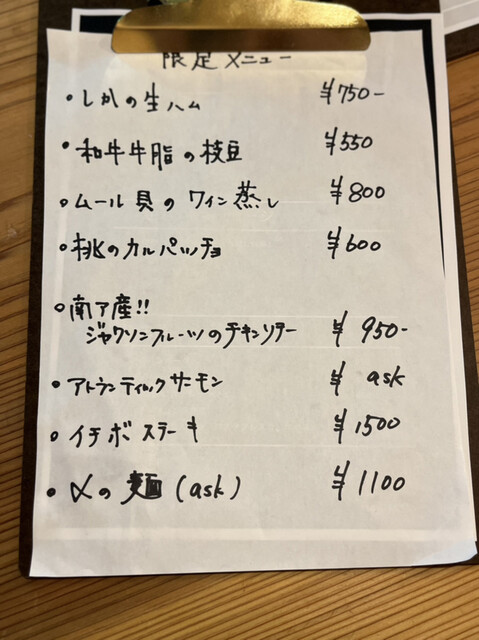 限定メニュー
・しかの生ハム ¥750-
・和牛牛脂の枝豆 ¥550
・ムール貝のワイン蒸し ¥800
・桃のカルパッチョ ¥600
・南ア産!!
ジャクソンフルーツのチキンソテー ¥950-
・アトランティックサーモン ¥ask
・イチボステーキ ¥1500
・〆の麺(ask) ¥1100